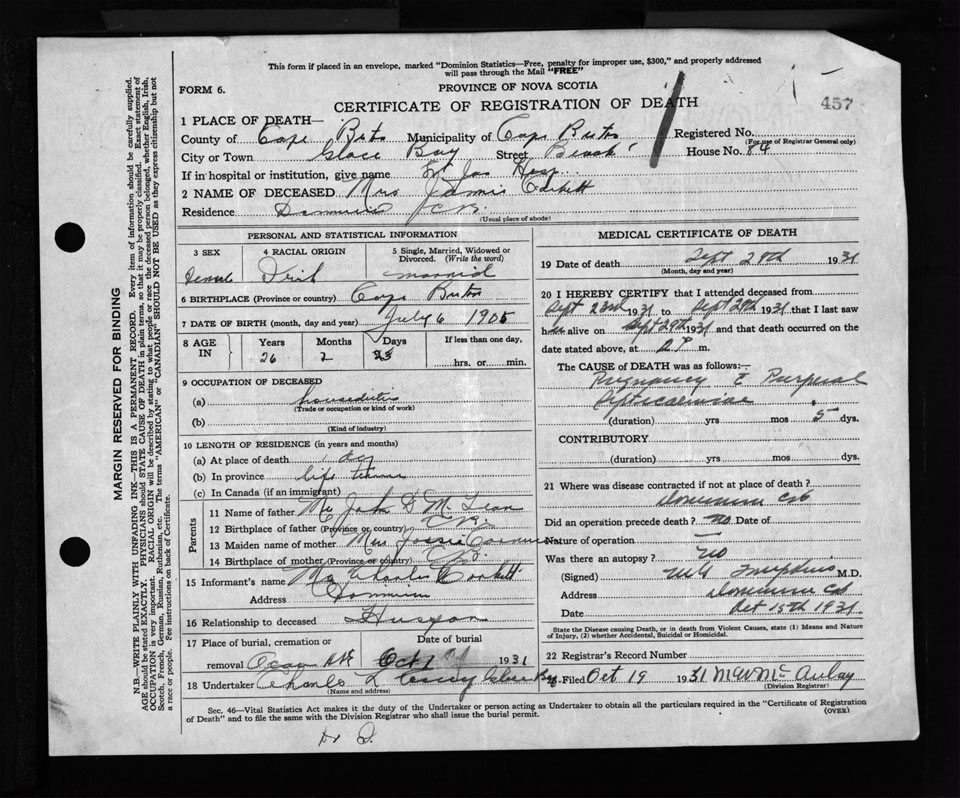 This form if placed in an envelope, marked "Dominion Statistics—Free, penalty for improper use, $300," and properly addressed
will pass through the Mail "FREE"
FORM 6.
PROVINCE OF NOVA SCOTIA
CERTIFICATE OF REGISTRATION OF DEATH
457
1 PLACE OF DEATH—
County of Cape Breton Municipality of Cape Breton Registered No.
(For use of Registrar General only)
City or Town Glace Bay Street Beach House No. 84
If in hospital or institution, give name St Jos Hosp.
2 NAME OF DECEASED Mrs James Corbett
Residence Dominion C.B.
(Usual place of abode)
PERSONAL AND STATISTICAL INFORMATION
3 SEX
Female
4 RACIAL ORIGIN
Irish
5 Single, Married, Widowed or
Divorced. (Write the word)
married
6 BIRTHPLACE (Province or country) Cape Breton
7 DATE OF BIRTH (month, day and year) July 6 1905
8 AGE IN
Years Months Days If less than one day,
26 2 23 hrs. or min.
9 OCCUPATION OF DECEASED
(a) housduties
(Trade or occupation or kind of work)
(b)
(Kind of industry)
10 LENGTH OF RESIDENCE (in years and months)
(a) At place of death 1 day
(b) In province life time
(c) In Canada (if an immigrant)
Parents
11 Name of father Mr John D McLean
12 Birthplace of father (Province or country) C.B.
13 Maiden name of mother Mrs Jossie
14 Birthplace of mother (Province or country) C.B.
15 Informant's name Mr Charles Corbett
Address Dominion
16 Relationship to deceased
17 Place of burial, cremation or
removal
Date of burial
Oct 1 1931
18 Undertaker Charles L Glace Bay
(Name and address)
MEDICAL CERTIFICATE OF DEATH
19 Date of death Sept 29th 1931
(Month, day and year)
20 I HEREBY CERTIFY that I attended deceased from
Sept 23rd 1931 to Sept 29th 1931 that I last saw
her alive on Sept 29th 1931 and that death occurred on the
date stated above, at 2 P m.
The CAUSE of DEATH was as follows:—
Pregnancy c̄ Purpural
Septicaemiae
(duration) yrs mos 5 dys.
CONTRIBUTORY
(duration) yrs mos dys.
21 Where was disease contracted if not at place of death?
Dominion CB
Did an operation precede death? no Date of
Nature of operation —
Was there an autopsy? no
(Signed) M.D.
Address Dominion CB
Date Oct 15th 1931
State the Disease causing Death, or in death from Violent Causes, state (1) Means and
Nature of Injury, (2) whether Accidental, Suicidal or Homicidal.
22 Registrar's Record Number
Filed Oct 19 1931 M W McAulay
(Division Registrar)
Sec. 46—Vital Statistics Act makes it the duty of the Undertaker or person acting as Undertaker to obtain all the particulars required in the "Certificate of Registration
of Death" and to file the same with the Division Registrar who shall issue the burial permit.
(OVER)
MARGIN RESERVED FOR BINDING
N.B.—WRITE PLAINLY WITH UNFADING INK—THIS IS A PERMANENT RECORD. Every item of information should be carefully supplied.
AGE should be stated EXACTLY. PHYSICIANS should STATE CAUSE OF DEATH in plain terms, so that it may be properly classified. Exact statement of
OCCUPATION is very important. RACIAL ORIGIN will be described by stating to what people or race the deceased person belonged, whether English, Irish,
Scotch, French, German, Russian, Ruthenian, etc. The terms "AMERICAN" or "CANADIAN" SHOULD NOT BE USED as they express citizenship but not
a race or people. Fee instructions on back of Certificate.